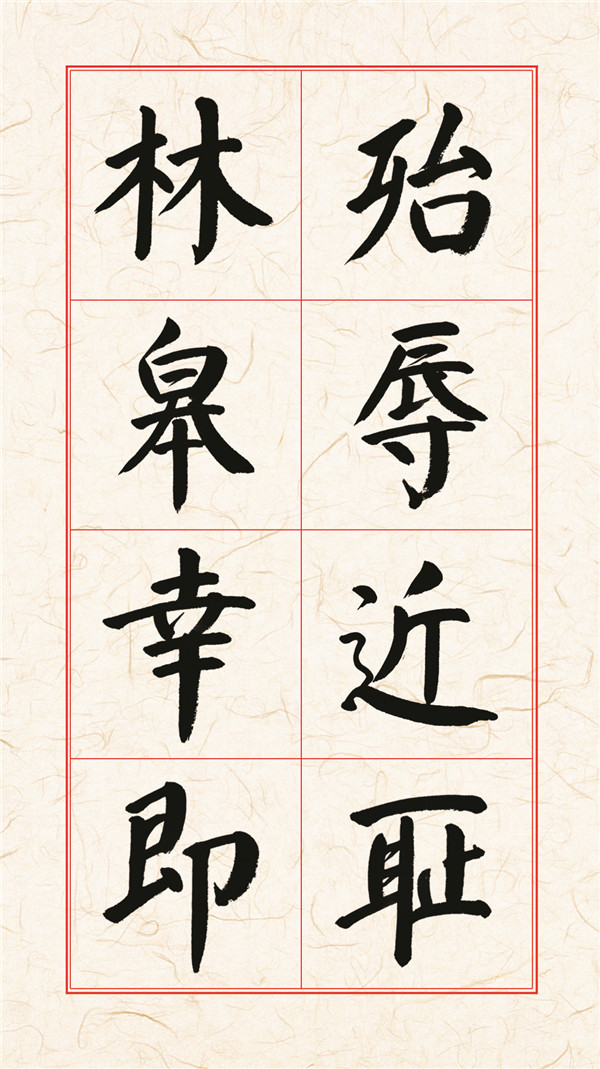 殆辱近耻
林皋幸即